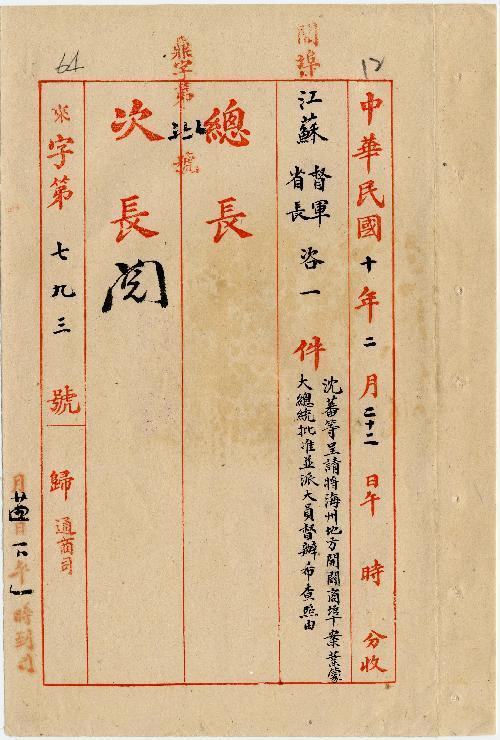 開埠
12
64
中華民國十年二月二十二日午時分收
江蘇督軍省長咨一件
沈蕃等呈請將海州地方開闢商埠一案業蒙
大總統批准並派大員督辦布查照由
總長
鼎字第號
次長閱
來字第七九三號歸通商司